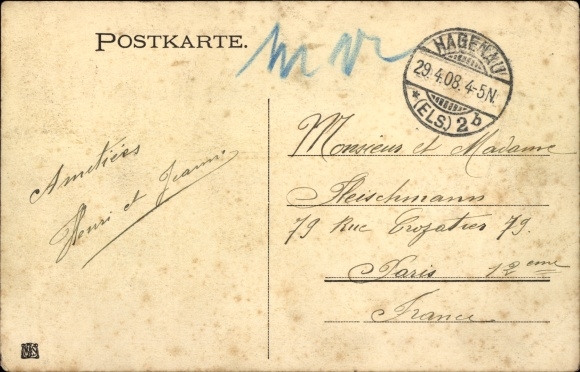 POSTKARTE.
HAGENAU
29.4.08.4-5N.
*(ELS.) 2b
Amitiés
Henri et Jeanne
Monsieur et Madame
Fleischmann
79 Rue Crozatier 79.
Paris 12eme
France